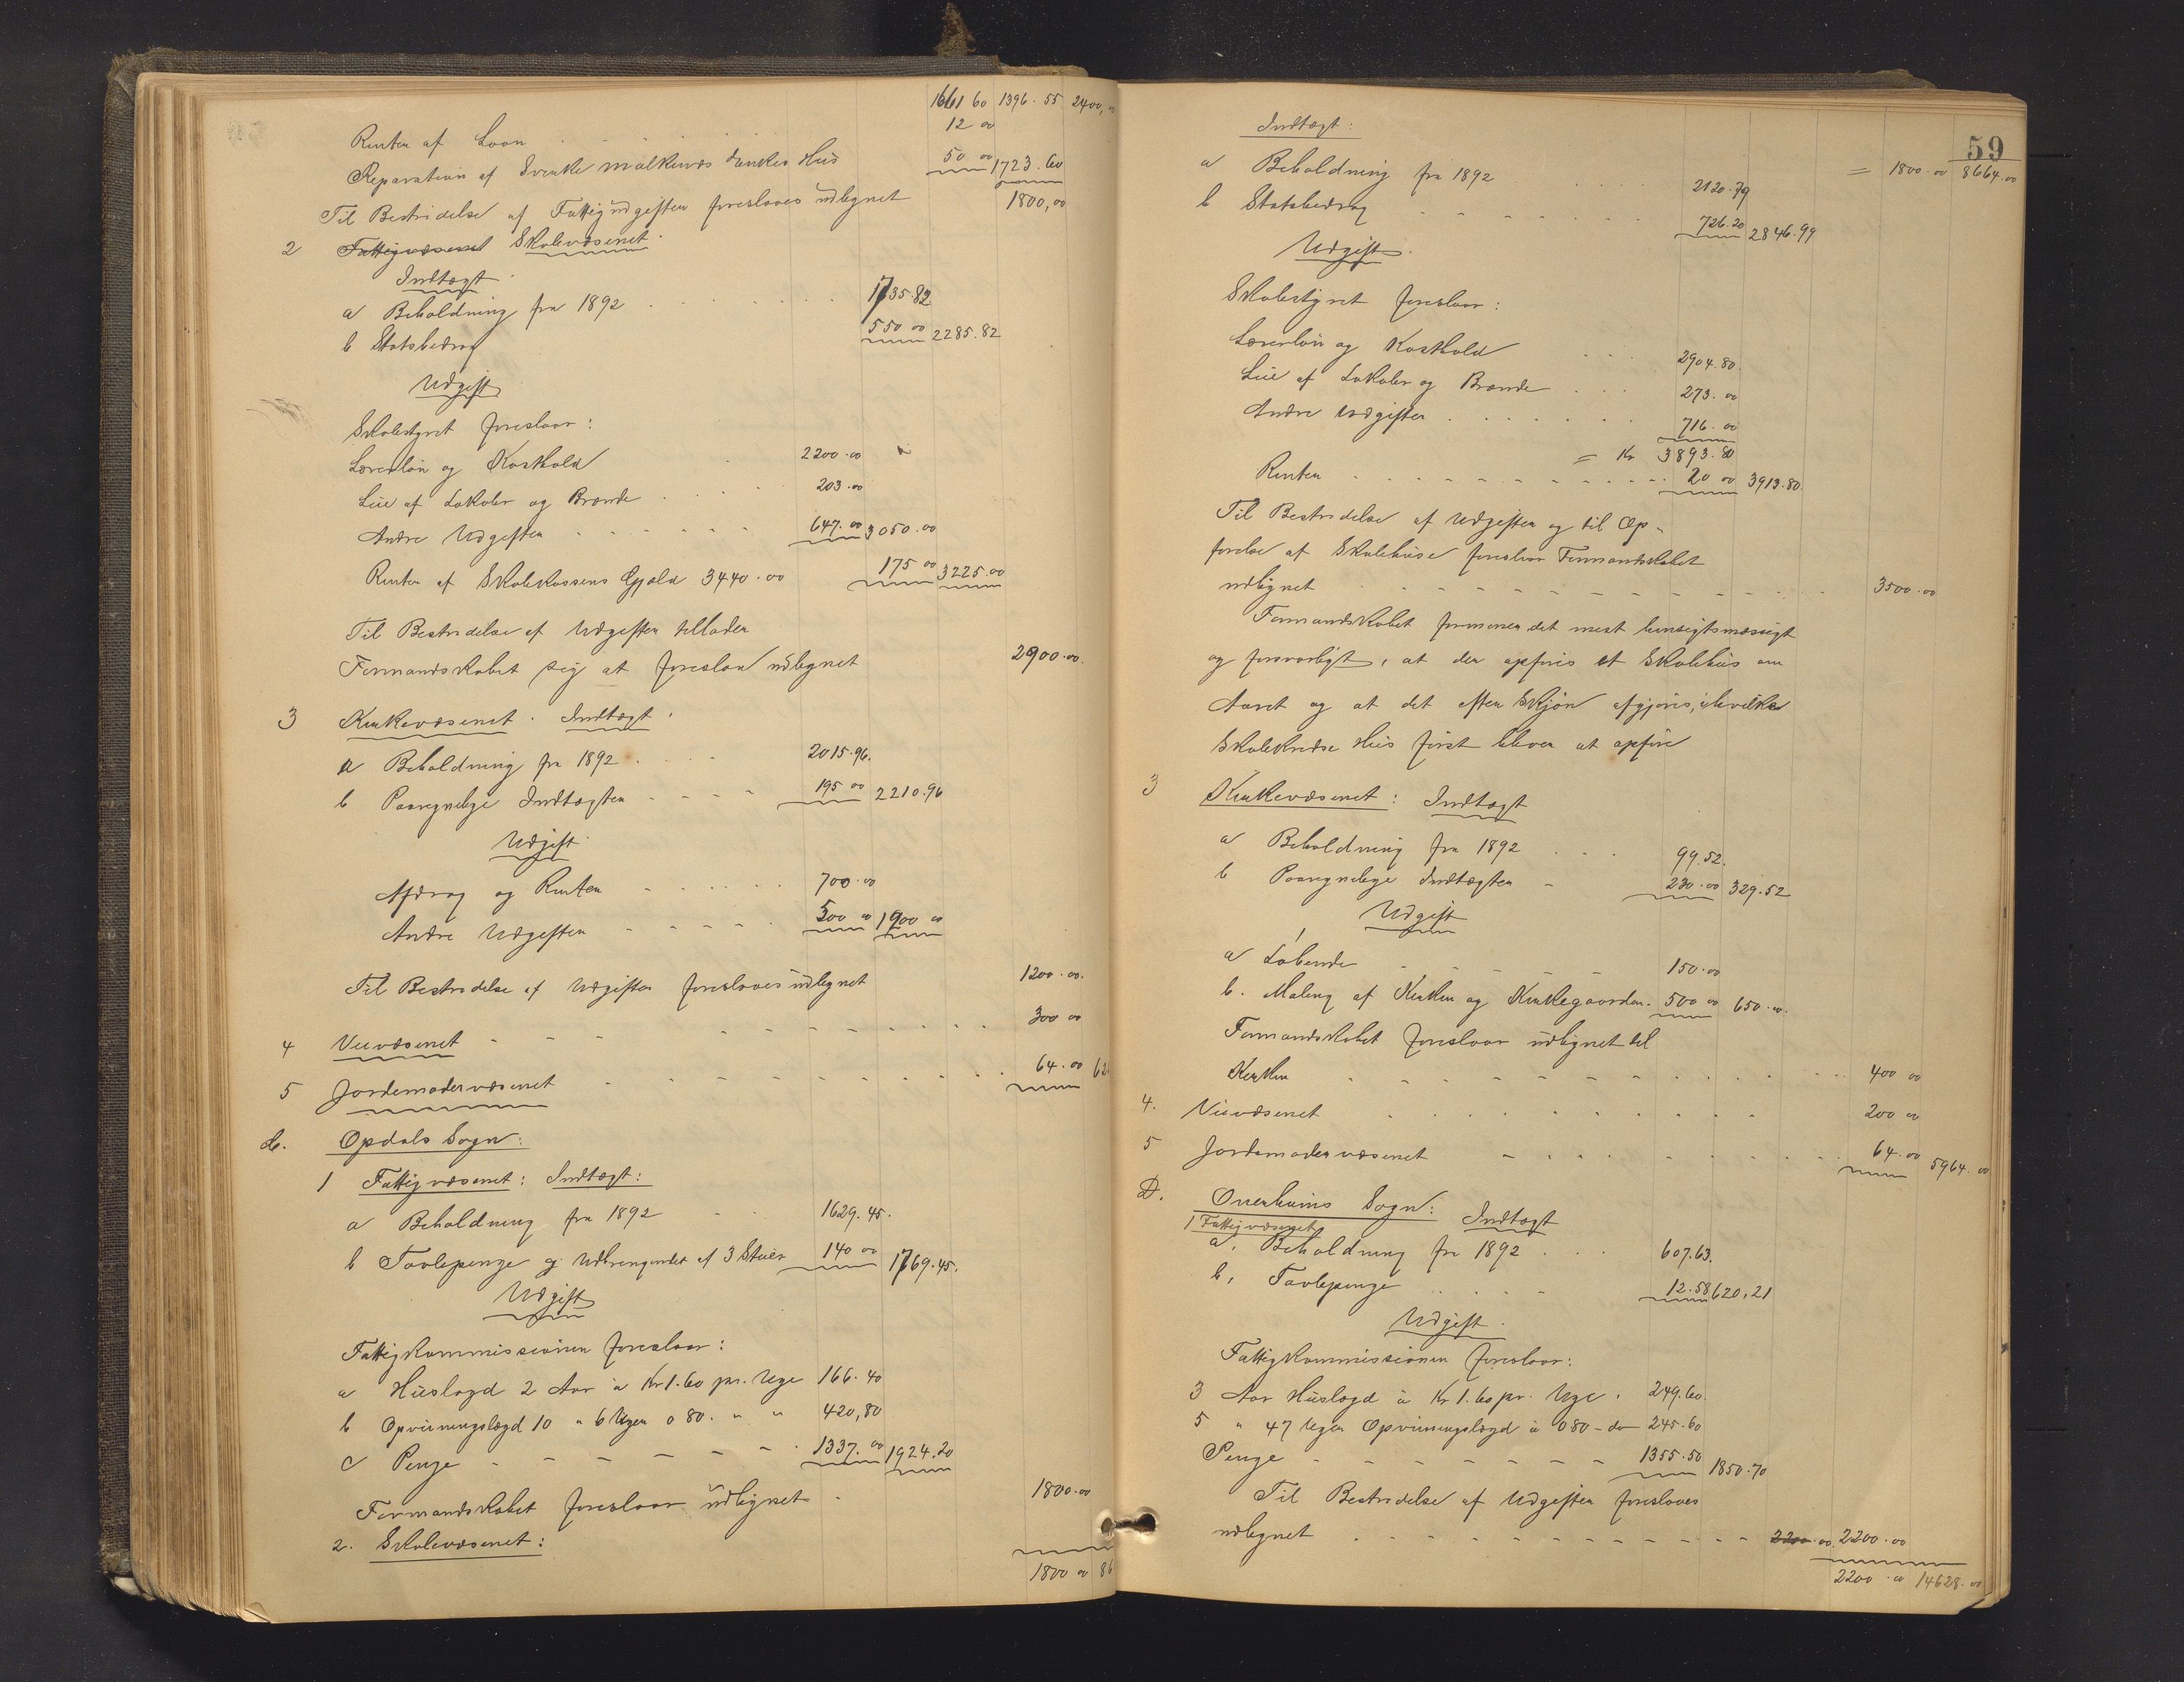 1661 60 1396.55 2400,
Renten af Laan 12 00
Reparation af Enke Hus 50 00 1723.60
Til Bestridelse af Fattigudgifter foreslaaes udlignet 1800,00
2 Fattigvæsenet Skolevæsenet.
Indtægt
a Beholdning fra 1892 1735.82
b Statsbidrag 550 00 2285.82
Udgift
Skolestyret foreslaar:
Lærerløn og Kosthold 2200.00
Leie af Lokaler og Brænde 203.00
Andre Udgifter 647.00 3050.00
Renter af Skolekassens Gjæld 3440.00 175 00 3225.00
Til Bestridelse af Udgifter tillader
Formandskabet sig at foreslaa udlignet 2900.00.
3 Kirkevæsenet. Indtægt.
a Beholdning fra 1892 2015.96.
b Paaregnelige Indtægter 195 00 2210.96
Udgift
Afdrag og Renter 700.00
Andre Udgifter 500 00 1900 00
Til Bestridelse af Udgifter foreslaaes udlignet 1200.00.
4 Veivæsenet 300 00
5 Jordemodervæsenet 64.00 62
C. Opdals Sogn:
1 Fattigvæsenet: Indtægt:
a Beholdning fra 1892 1629.45.
b Tavlepenge og Udbringendet af 3 Stuer 140 00 1769.45.
Udgift
Fattigkommissionen foreslaar:
a Huslægd 2 Aar à Kr 1.60 pr. Uge 166.40
b Opviiningslægd 10 " 6 Uger 0 80. " " 420,80
c Penge 1337.00 1924.20
Formandskabet foreslaar udlignet 1800.00
2. Skolevæsenet:
1800 00 86
59
Indtægt: = 1800.00 8664.00
a Beholdning fra 1892 2120.79
b Statsbidrag 726.20 2846.99
Udgift.
Skolestyret foreslaar:
Lærerløn og Kosthold 2904.80.
Leie af Lokaler og Brænde 273.00
Andre Udgifter 716.00
= Kr 3893.80
Renter 20 00 3913.80.
Til Bestridelse af Udgifter og til Op-
førelse af Skolehuse foreslaar Formandskabet
udlignet 3500.00
Formandskabet formener det mest hensigtsmæssigt
og forsvarligt, at der opføres et Skolehus om
Aaret og at det efter Skjøn afgjøres, i hvilke
Skolekredse Hus først bliver at opføre
3 Kirkevæsenet: Indtægt
a Beholdning fra 1892 99.52.
b Paaregnelige Indtægter 230.00 329.52
Udgift
a Løbende 150.00
b. Maling af Kirken og Kirkegaarden. 500 00 650.00.
Formandskabet foreslaar udlignet til
Kirken 400 00
4. Veivæsenet 200 00
5 Jordemodervæsenet 64.00 5964.00
D. Ørenhuins Sogn: Indtægt
1 Fattigvæsenet
a. Beholdning fra 1892 607.63.
b, Tavlepenge 12.58 620,21
Udgift.
Fattigkommissionen foreslaar:
3 Aar Huslægd à Kr 1.60 pr. Uge. 249.60.
5 " 47 Uger Opviiningslægd à 0 80 - do 245.60
Penge 1355.50 1850.70
Til Bestridelse af Udgifter foreslaaes
udlignet 2200.00. 2200.00
2200.00 14628.00